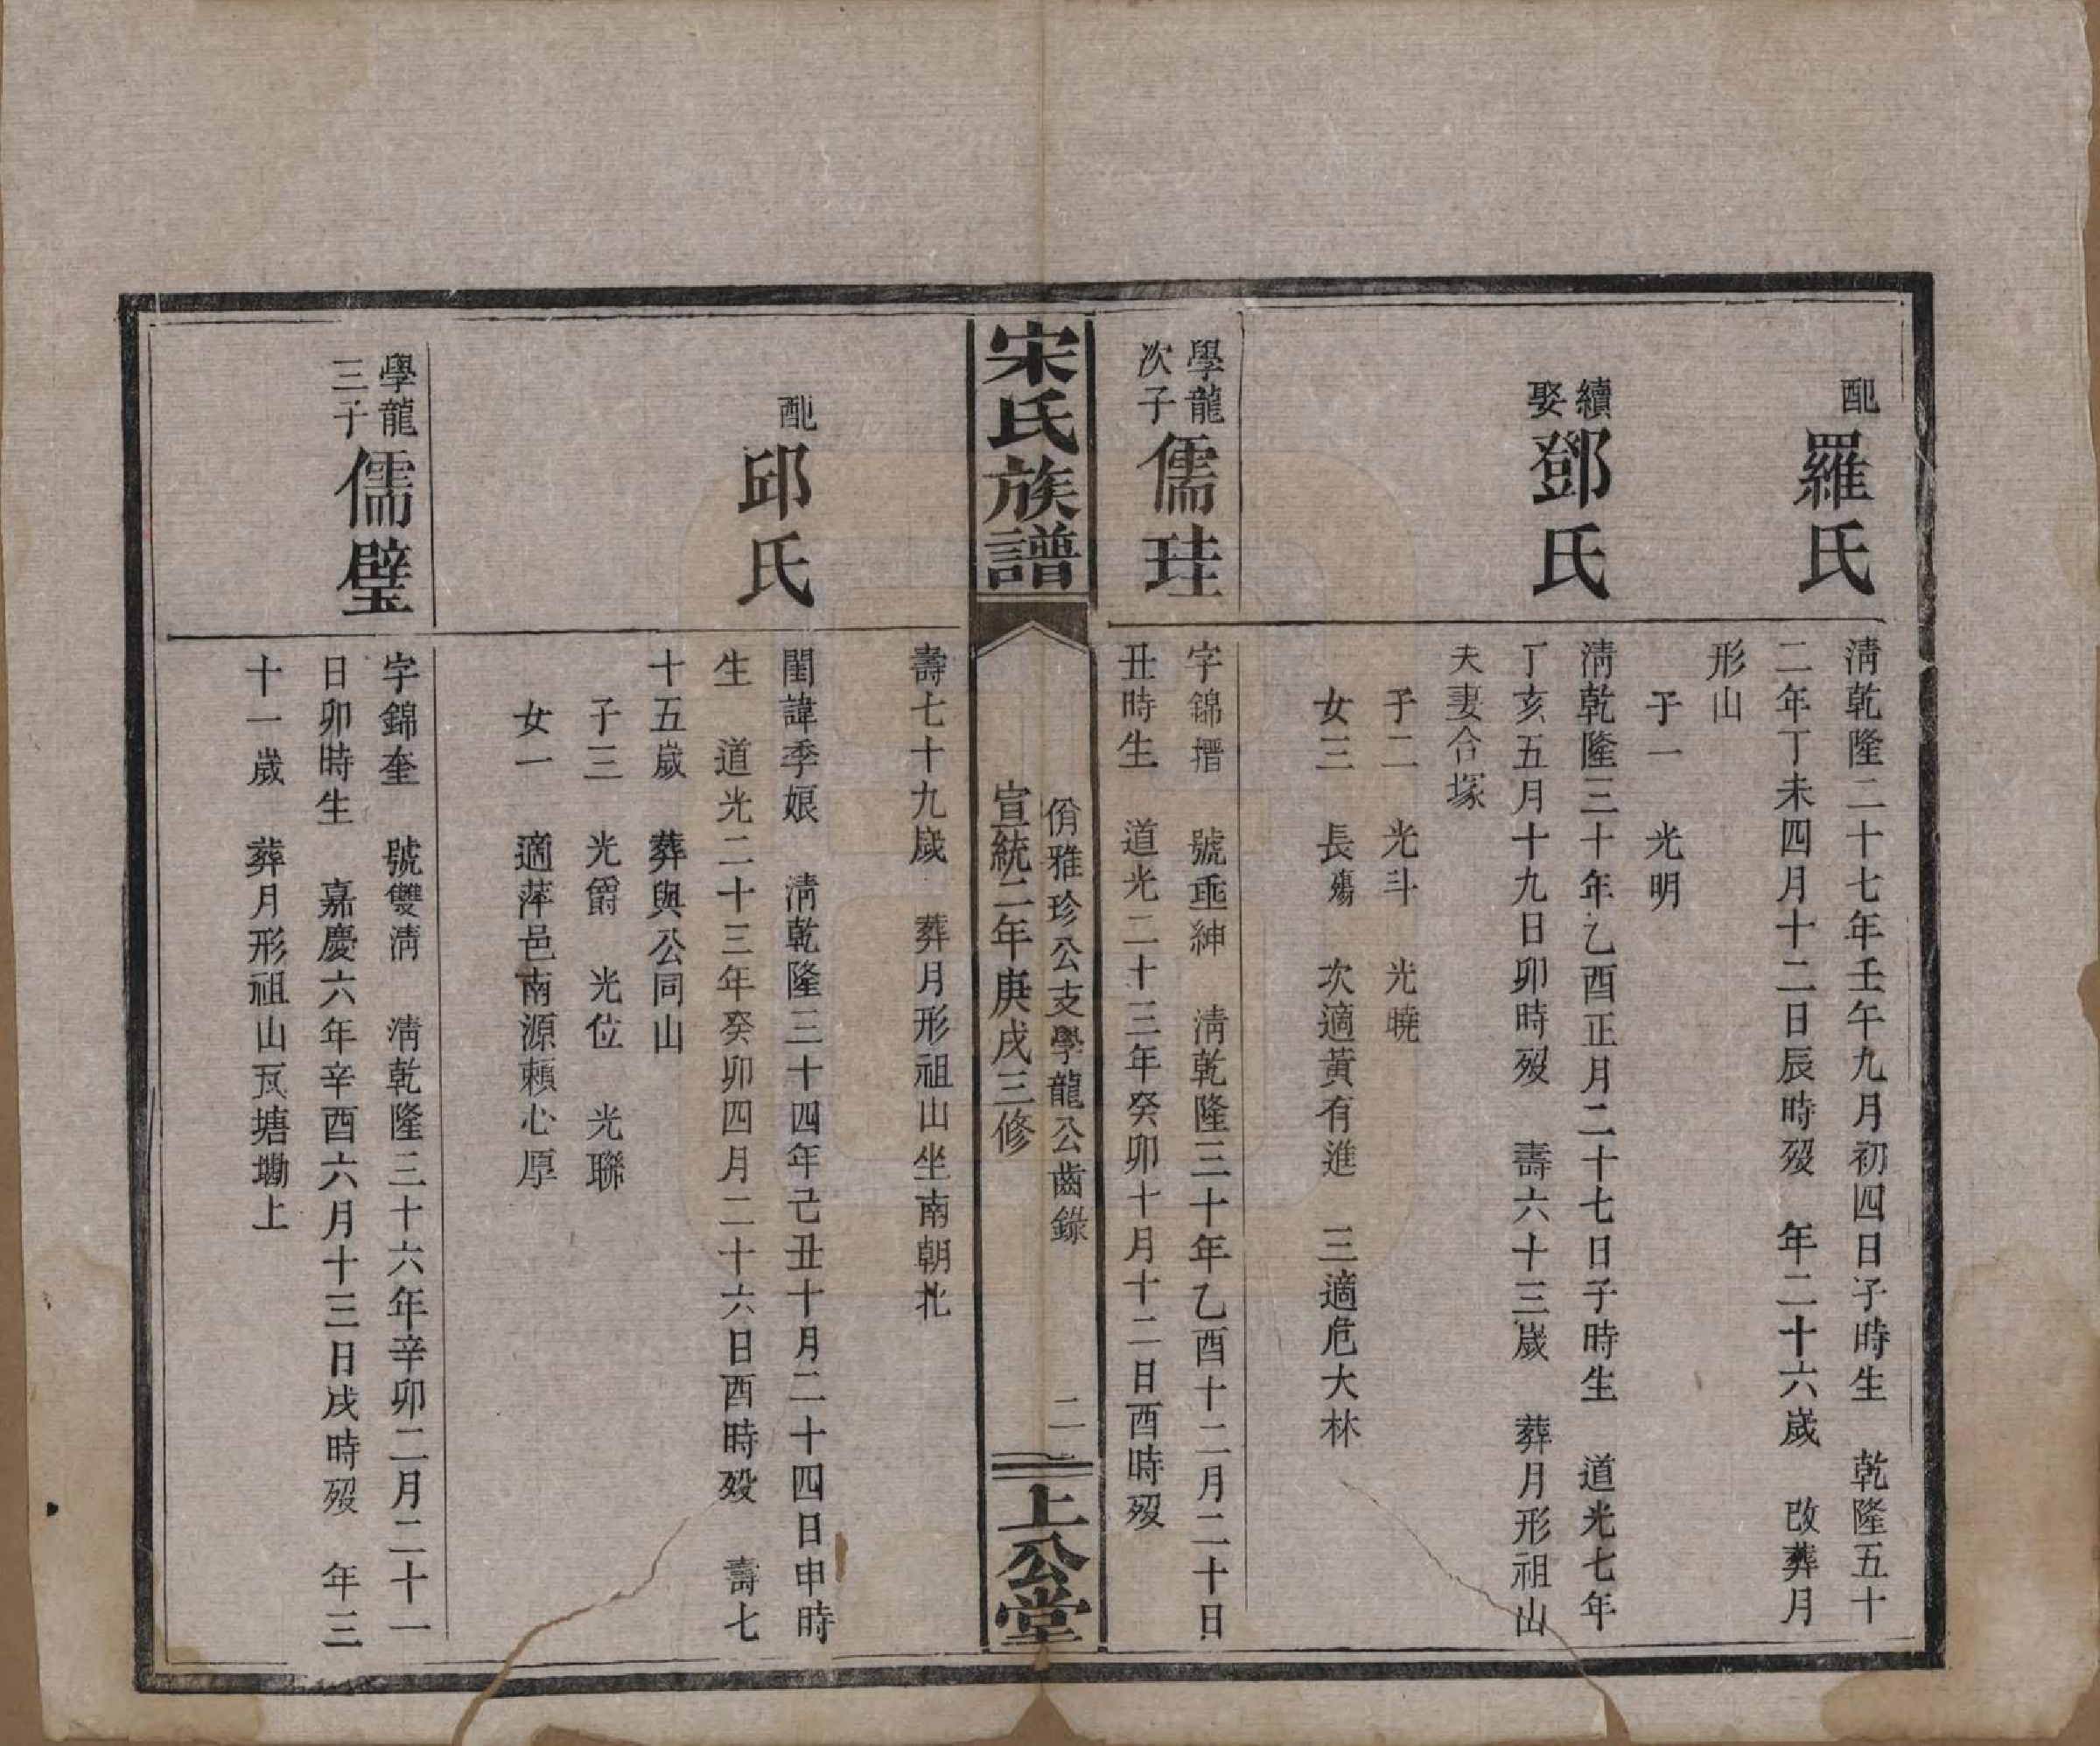 配
羅氏
清乾隆二十七年壬午九月初四日子時生　乾隆五十
二年丁未四月十二日辰時歿　年二十六歲　改葬月
形山
子一　光明
續娶
鄧氏
清乾隆三十年乙酉正月二十七日子時生　道光七年
丁亥五月十九日卯時歿　壽六十三歲　葬月形祖山
夫妻合塚
子二　光斗　光曉
女三　長殤　次適黃有進　三適危大林
學龍
次子
儒珪
字錦搢　號垂紳　清乾隆三十年乙酉十二月二十日
丑時生　道光二十三年癸卯十月十二日酉時歿
宋氏族譜
佾雅珍公支學龍公齒錄
宣統二年庚戌三修
二
上公堂
壽七十九歲　葬月形祖山坐南朝北
配
邱氏
閨諱季娘　清乾隆三十四年己丑十月二十四日申時
生　道光二十三年癸卯四月二十六日酉時歿　壽七
十五歲　葬與公同山
子三　光爵　光位　光聯
女一　適萍邑南源賴心厚
學龍
三子
儒璧
字錦奎　號雙清　清乾隆三十六年辛卯二月二十一
日卯時生　嘉慶六年辛酉六月十三日戌時歿　年三
十一歲　葬月形祖山瓦塘塅上